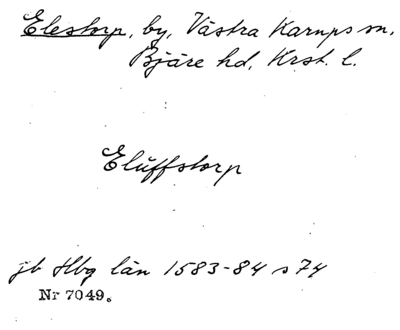 Elestorp, by, Västra Karups sn,
Bjäre hd, Krst. l.
Eluffstorp
jb Hbg län 1583-84 s 74
Nr 7049.